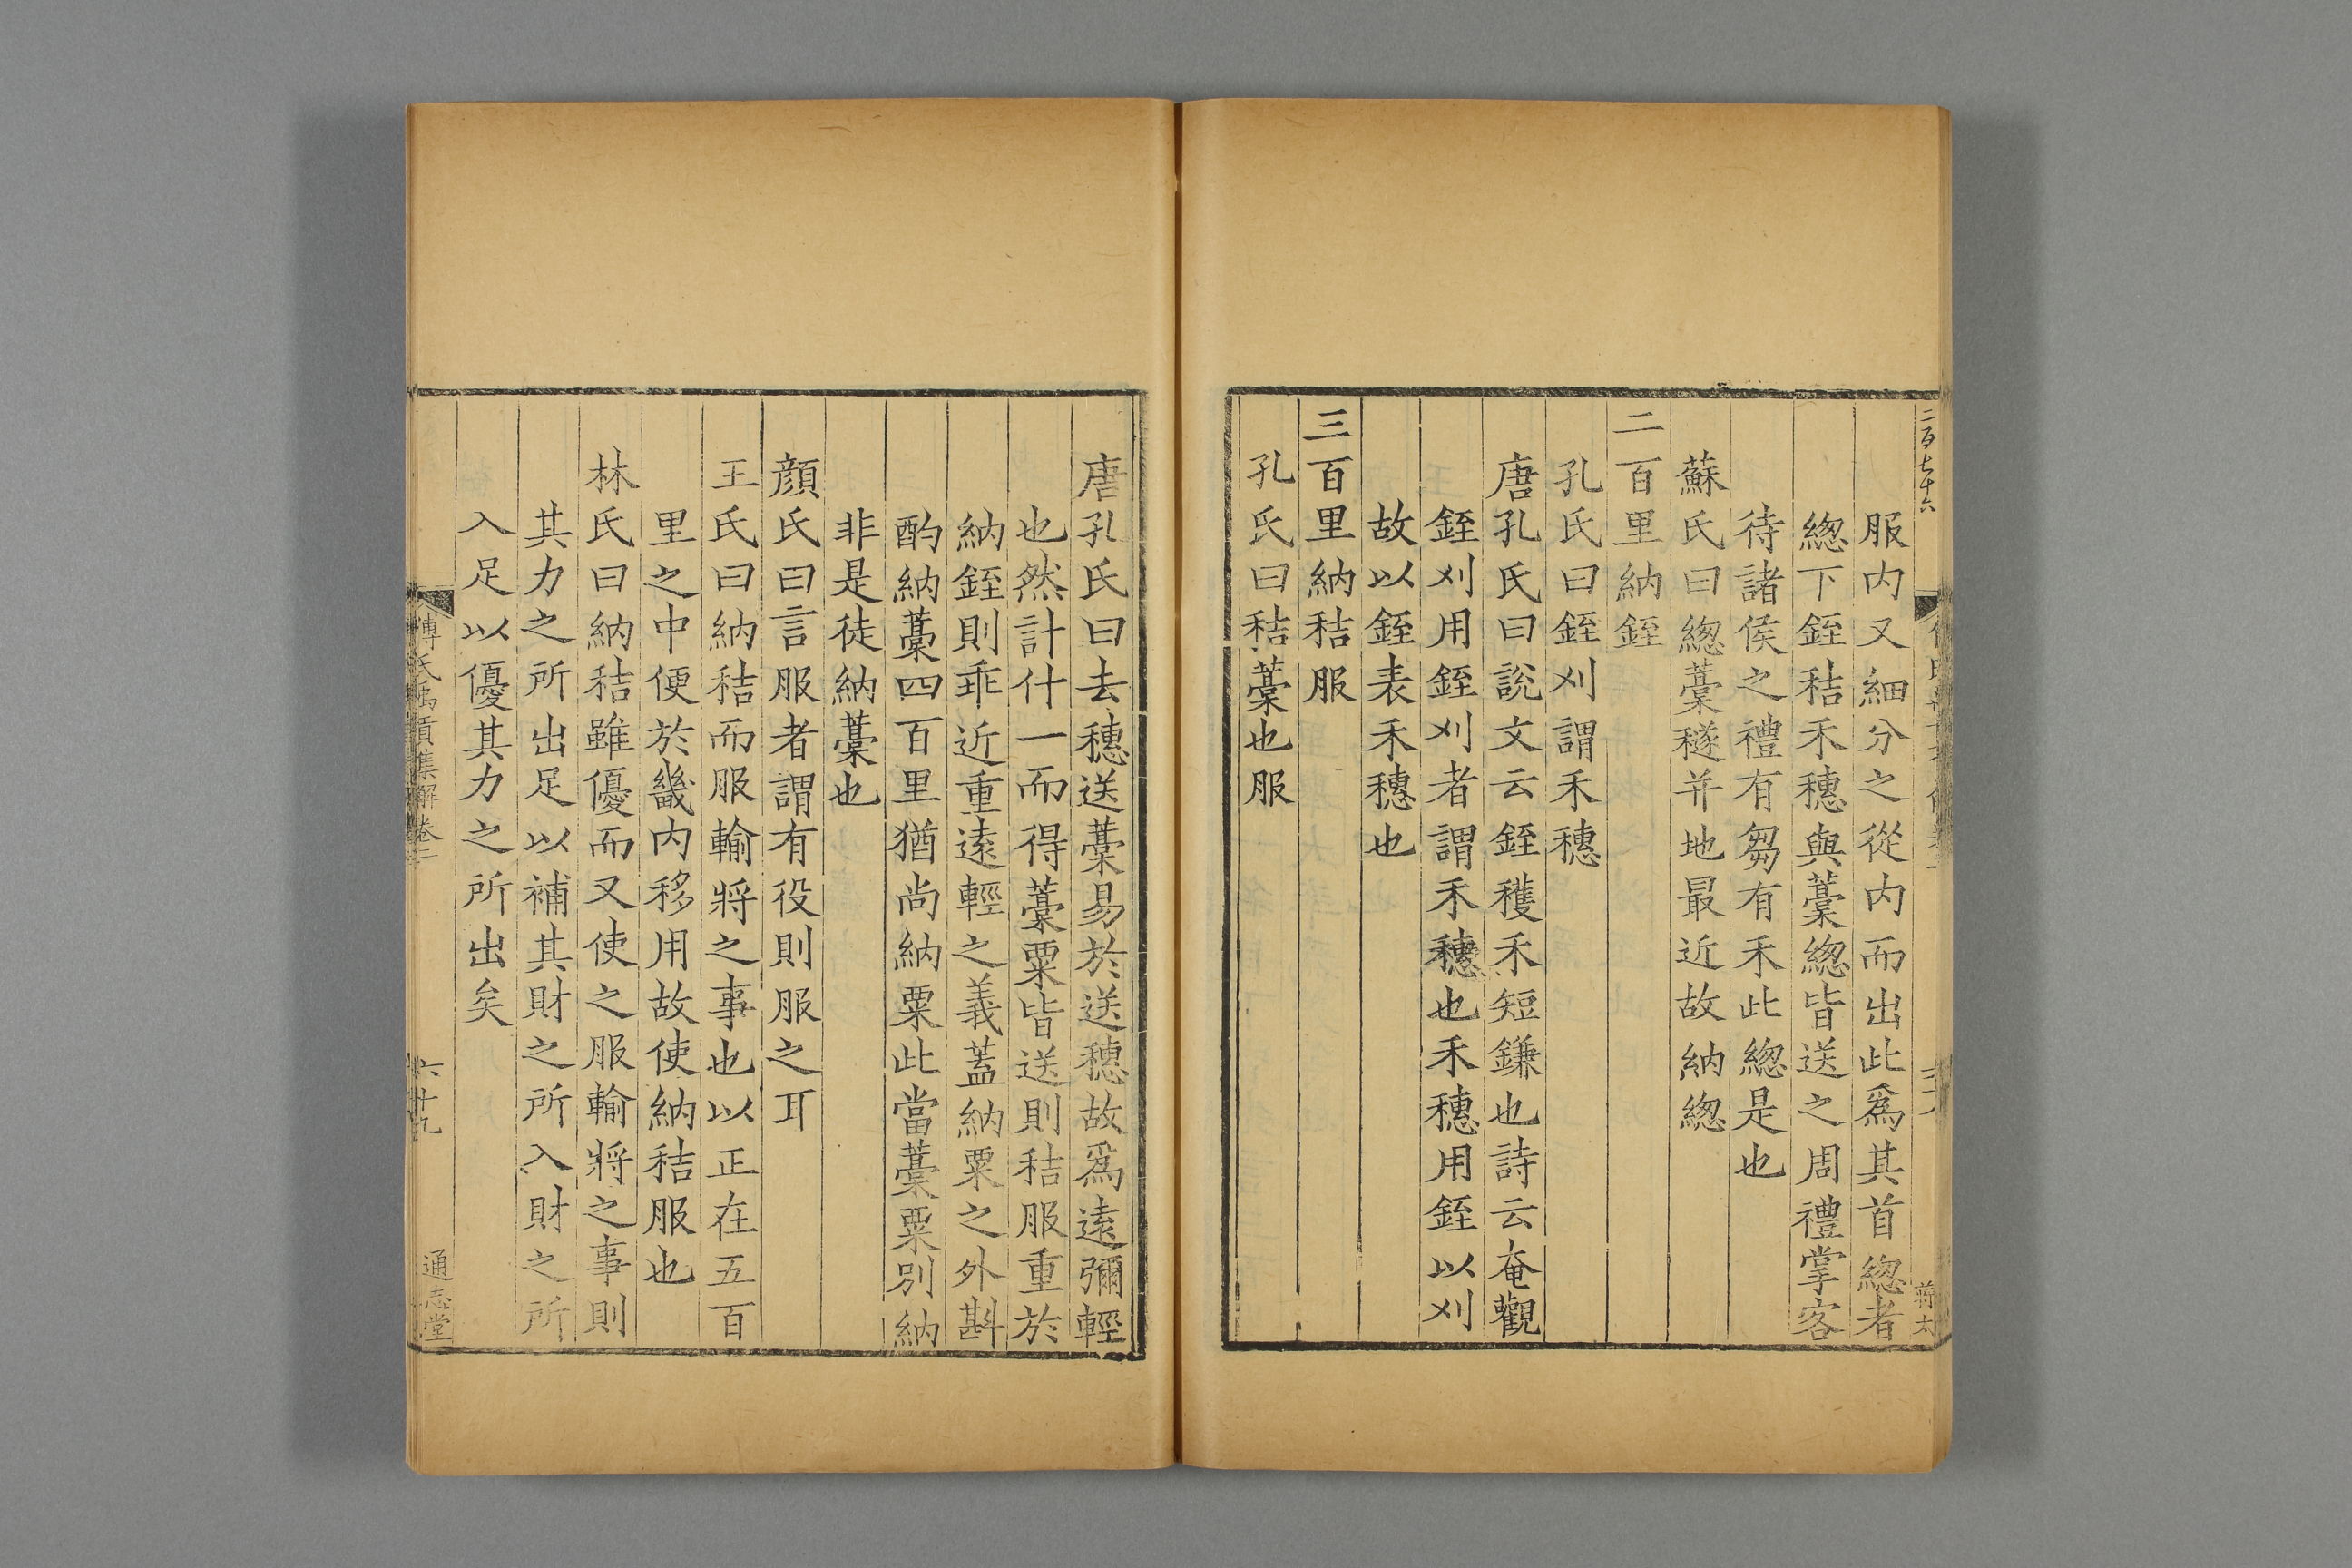 二百七十六
蔣太
服内又細分之從内而出此爲其首緫者
緫下銍秸禾穗與藁緫皆送之周禮掌客
待諸侯之禮有芻有禾此緫是也
蘇氏曰緫藁穟并地最近故納緫
二百里納銍
孔氏曰銍刈謂禾穗
唐孔氏曰說文云銍穫禾短鎌也詩云奄觀
銍刈用銍刈者謂禾穗也禾穗用銍以刈
故以銍表禾穗也
三百里納秸服
孔氏曰秸藁也服
唐孔氏曰去穗送藁易於送穗故爲遠彌輕
也然計什一而得藁粟皆送則秸服重於
納銍則乖近重遠輕之義蓋納粟之外斟
酌納藁四百里猶尚納粟此當藁粟別納
非是徒納藁也
顏氏曰言服者謂有役則服之耳
王氏曰納秸而服輸將之事也以正在五百
里之中便於畿内移用故使納秸服也
林氏曰納秸雖優而又使之服輸將之事則
其力之所出足以補其財之所入財之所
入足以優其力之所出矣
傅氏禹貢集解卷二
六十九
通志堂